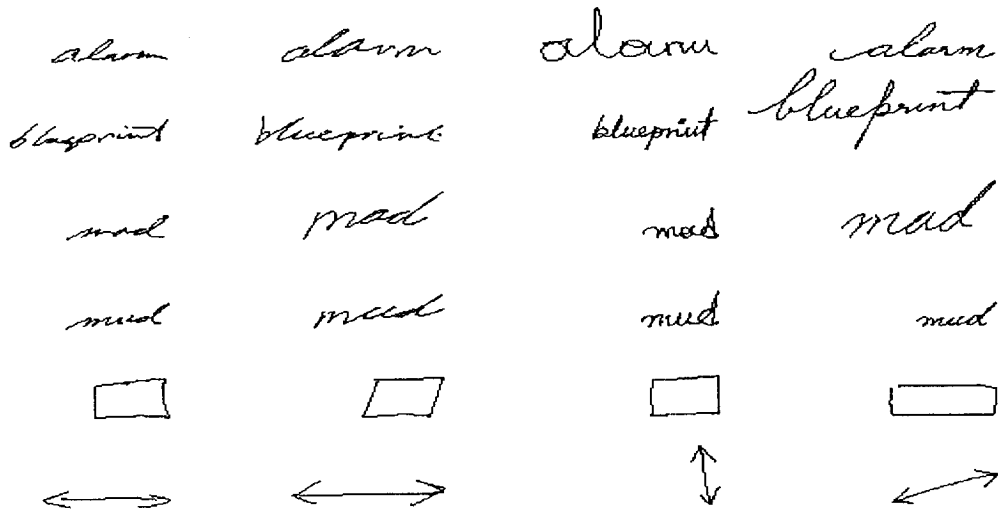 alarm alarm alarm alarm
blueprint blueprint blueprint blueprint
mad mad mad mad
mud mud mud mud